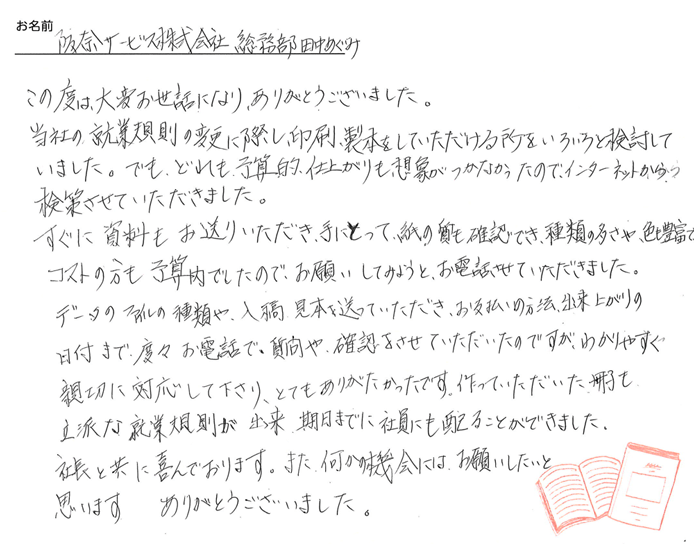 お名前 阪奈サービス株式会社 総務部 田中めぐみ
この度は、大変お世話になり、ありがとうございました。
当社の就業規則の変更に際し、印刷、製本をしていただける所をいろいろと検討して
いました。でも、どれも予算的、仕上がりも想象がつかなかったので、インターネットから
検策させていただきました。
すぐに資料もお送りいただき、手にとって、紙の質も確認でき、種類の多さや、色も豊富で
コストの方も予算内でしたので、お願いしてみようと、お電話させていただきました。
データのファイルの種類や、入稿見本を送っていただき、お支払いの方法、出来上がりの
日付まで、度々お電話で、質問や、確認をさせていただいたのですが、わかりやすく
親切に対応して下さり、とてもありがたかったです。作っていただいた冊子も
立派な就業規則が出来、期日までに社員にも配ることができました。
社長と共に喜んでおります。また、何かの機会には、お願いしたいと
思います ありがとうございました。